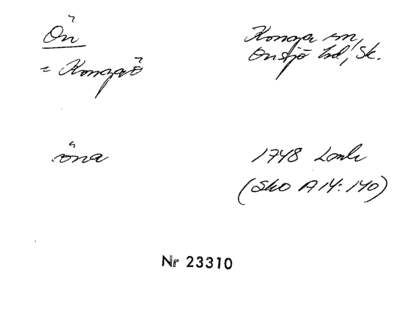 Ön
Konga sn,
Onsjö hd, Sk.
= Kongaö
öna
1748 Lantm
(Sko A14:140)
Nr 23310